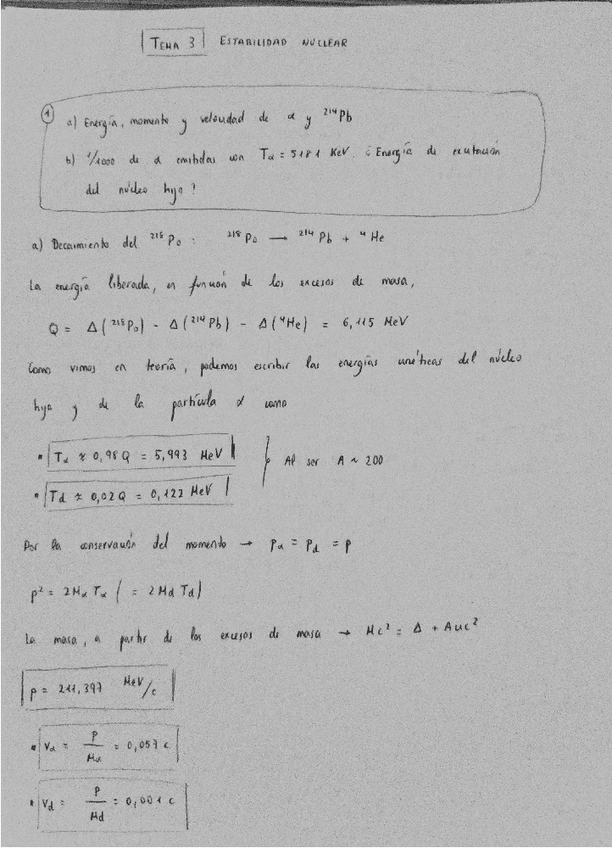 TEMA 3 ESTABILIDAD NUCLEAR
① a) Energía, momento y velocidad de α y ²¹⁴Pb
b) 1/1000 de α emitidas con Tα = 5181 KeV. ¿Energía de excitación
del núcleo hijo?
a) Decaimiento del ²¹⁸Po : ²¹⁸Po → ²¹⁴Pb + ⁴He
La energía liberada, en función de los excesos de masa,
Q = Δ(²¹⁸Po) - Δ(²¹⁴Pb) - Δ(⁴He) = 6,115 MeV
Como vimos en teoría, podemos escribir las energías cinéticas del núcleo
hijo y de la partícula α como
• Tα ≈ 0,98 Q = 5,993 MeV } Al ser A ~ 200
• Td ≈ 0,02 Q = 0,122 MeV
Por la conservación del momento → pα = pd = p
p² = 2Mα Tα ( = 2Md Td)
La masa, a partir de los excesos de masa → Mc² = Δ + Auc²
p = 211,397 MeV/c
• Vα = p/Mα = 0,057 c
• Vd = p/Md = 0,001 c